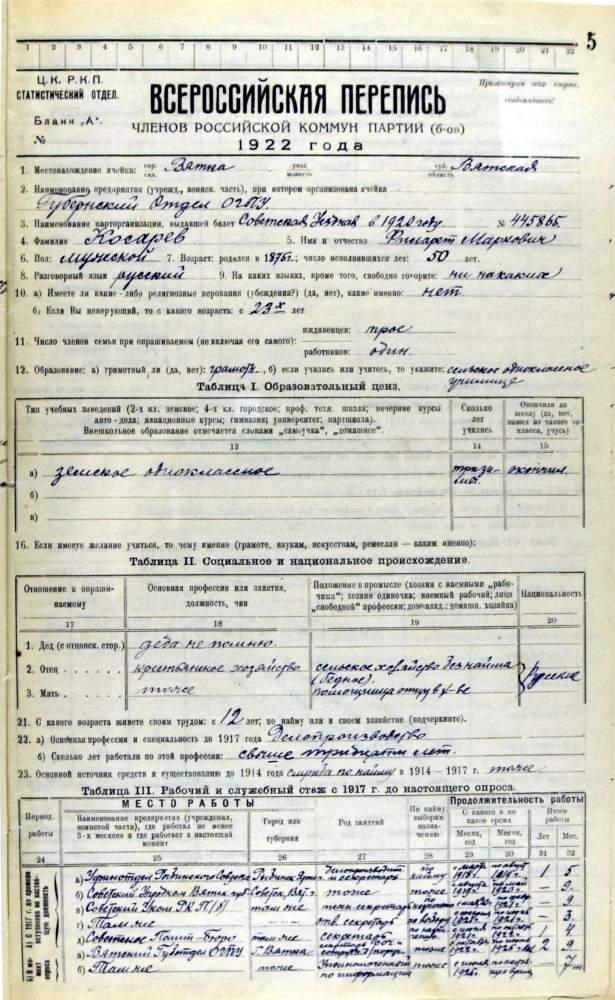 1 2 3 4 5 6 7 8 9 10 11 12 13 14 15 16 17 18 19 20 21 22
5
Ц. К. Р. К. П.
СТАТИСТИЧЕСКИЙ ОТДЕЛ.
Бланк „А“.
№
ВСЕРОССИЙСКАЯ ПЕРЕПИСЬ
ЧЛЕНОВ РОССИЙСКОЙ КОММУН ПАРТИИ (б-ов)
1922 года
1. Местонахождение ячейки: гор. сел. Вятка уезд волость губ. область Вятская
2. Наименование предприятия (учрежд., воинск. часть), при котором организована ячейка
Губернский Отдел ОГПУ.
3. Наименование парторганизации, выдавшей билет Советская Уездная в 1920 году. № 445865.
4. Фамилия Косарев 5. Имя и отчество Филарет Маркович
6. Пол: мужской 7. Возраст: родился в 1876 г.; число исполнившихся лет: 50 лет.
8. Разговорный язык русский 9. На каких языках, кроме того, свободно говорите: ни на каких
10. а) Имеете ли какие-либо религиозные верования (убеждения?) (да, нет), какие именно: нет.
б) Если Вы неверующий, то с какого возраста: с 23х лет
иждивенцев: трое
11. Число членов семьи при опрашиваемом (не включая его самого):
работников: один.
12. Образование: а) грамотный ли (да, нет): грамотн., б) если учились или учитесь, то укажите: сельское одноклассное
училище
Таблица I. Образовательный ценз.
Тип учебных заведений (2-х кл. земское; 4-х кл. городское; проф. техн. школа; вечерние курсы
авто-дела; авиационные курсы; гимназия; университет; партшкола).
Внешкольное образование отмечается словами „самоучка“, „домашнее“.
Сколько лет учились
Окончили ли школу (да, нет, вышел из такого то класса, учусь)
13 14 15
а) земское одноклассное окончил
б)
в)
16. Если имеете желание учиться, то чему именно (грамоте, наукам, искусствам, ремеслам — каким именно):
Таблица II. Социальное и национальное происхождение.
Отношение к опрашиваемому
Основная профессия или занятия, должность, чин
Положение в промысле (хозяин с наемными „рабочими“; хозяин одиночка; наемный рабочий; лицо „свободной“ профессии; домовлад.; домашн. хозяйка)
Национальность
17 18 19 20
1. Дед (с отцовск. стор.) деда не помню.
2. Отец крестьянское хозяйство сельское хозяйство без найма
(бедное). Русские
3. Мать тоже помощница отцу в х-ве
21. С какого возраста живете своим трудом: с 12 лет; по найму или в своем хозяйстве (подчеркните).
22. а) Основная профессия и специальность до 1917 года Делопроизводство
б) Сколько лет работали по этой профессии: свыше тридцати лет.
23. Основной источник средств к существованию до 1914 года служба по найму в 1914—1917 г. тоже
Таблица III. Рабочий и служебный стаж с 1917 г. до настоящего опроса.
Период. работы
МЕСТО РАБОТЫ
Наименование предприятия (учреждения, воинской части), где работал не менее 3-х месяцев и где работает в настоящий момент
Город или губерния
Род занятий
По найму, выборам назначению
Продолжительность работы
С какого и по какое время
Месяц, год
Месяц, год
Итого работы
Лет Мес.
24 25 26 27 28 29 30 31 32
а) Рыбинского 1 5
б) Советский тоже тоже 9
в) Советский Уком РКП(б) там же техн. секретарь 9
г) Там же отв. секретарь 3
д) Советское Полит-Бюро там же секретарь 1 4
а) Вятский Губотдел ОГПУ г. Вятка тоже 2 9
б) Там же тоже Уполномоченный тоже 7
по информации